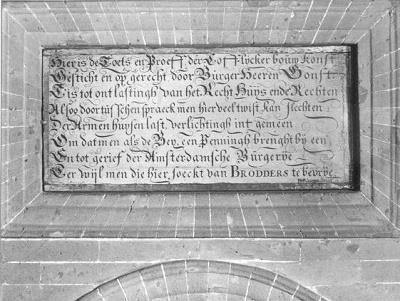 Hier is de Toets en Proef der Loflycker bouw konst
Gesticht en op gerecht door Burger Heeren Gonst
Tis tot ontlastingh van het Recht Huys ende Rechten
Alsoo door tusschen spraeck men hier veel twist kan slechten
Der Armen huysen last verlichtingh int gemeen
Om dat men als de Bey een Penningh brenght by een
En tot gerief der Amsterdamsche Burgerye
Ter wijl men die hier soeckt van BRODDERS te bevrye